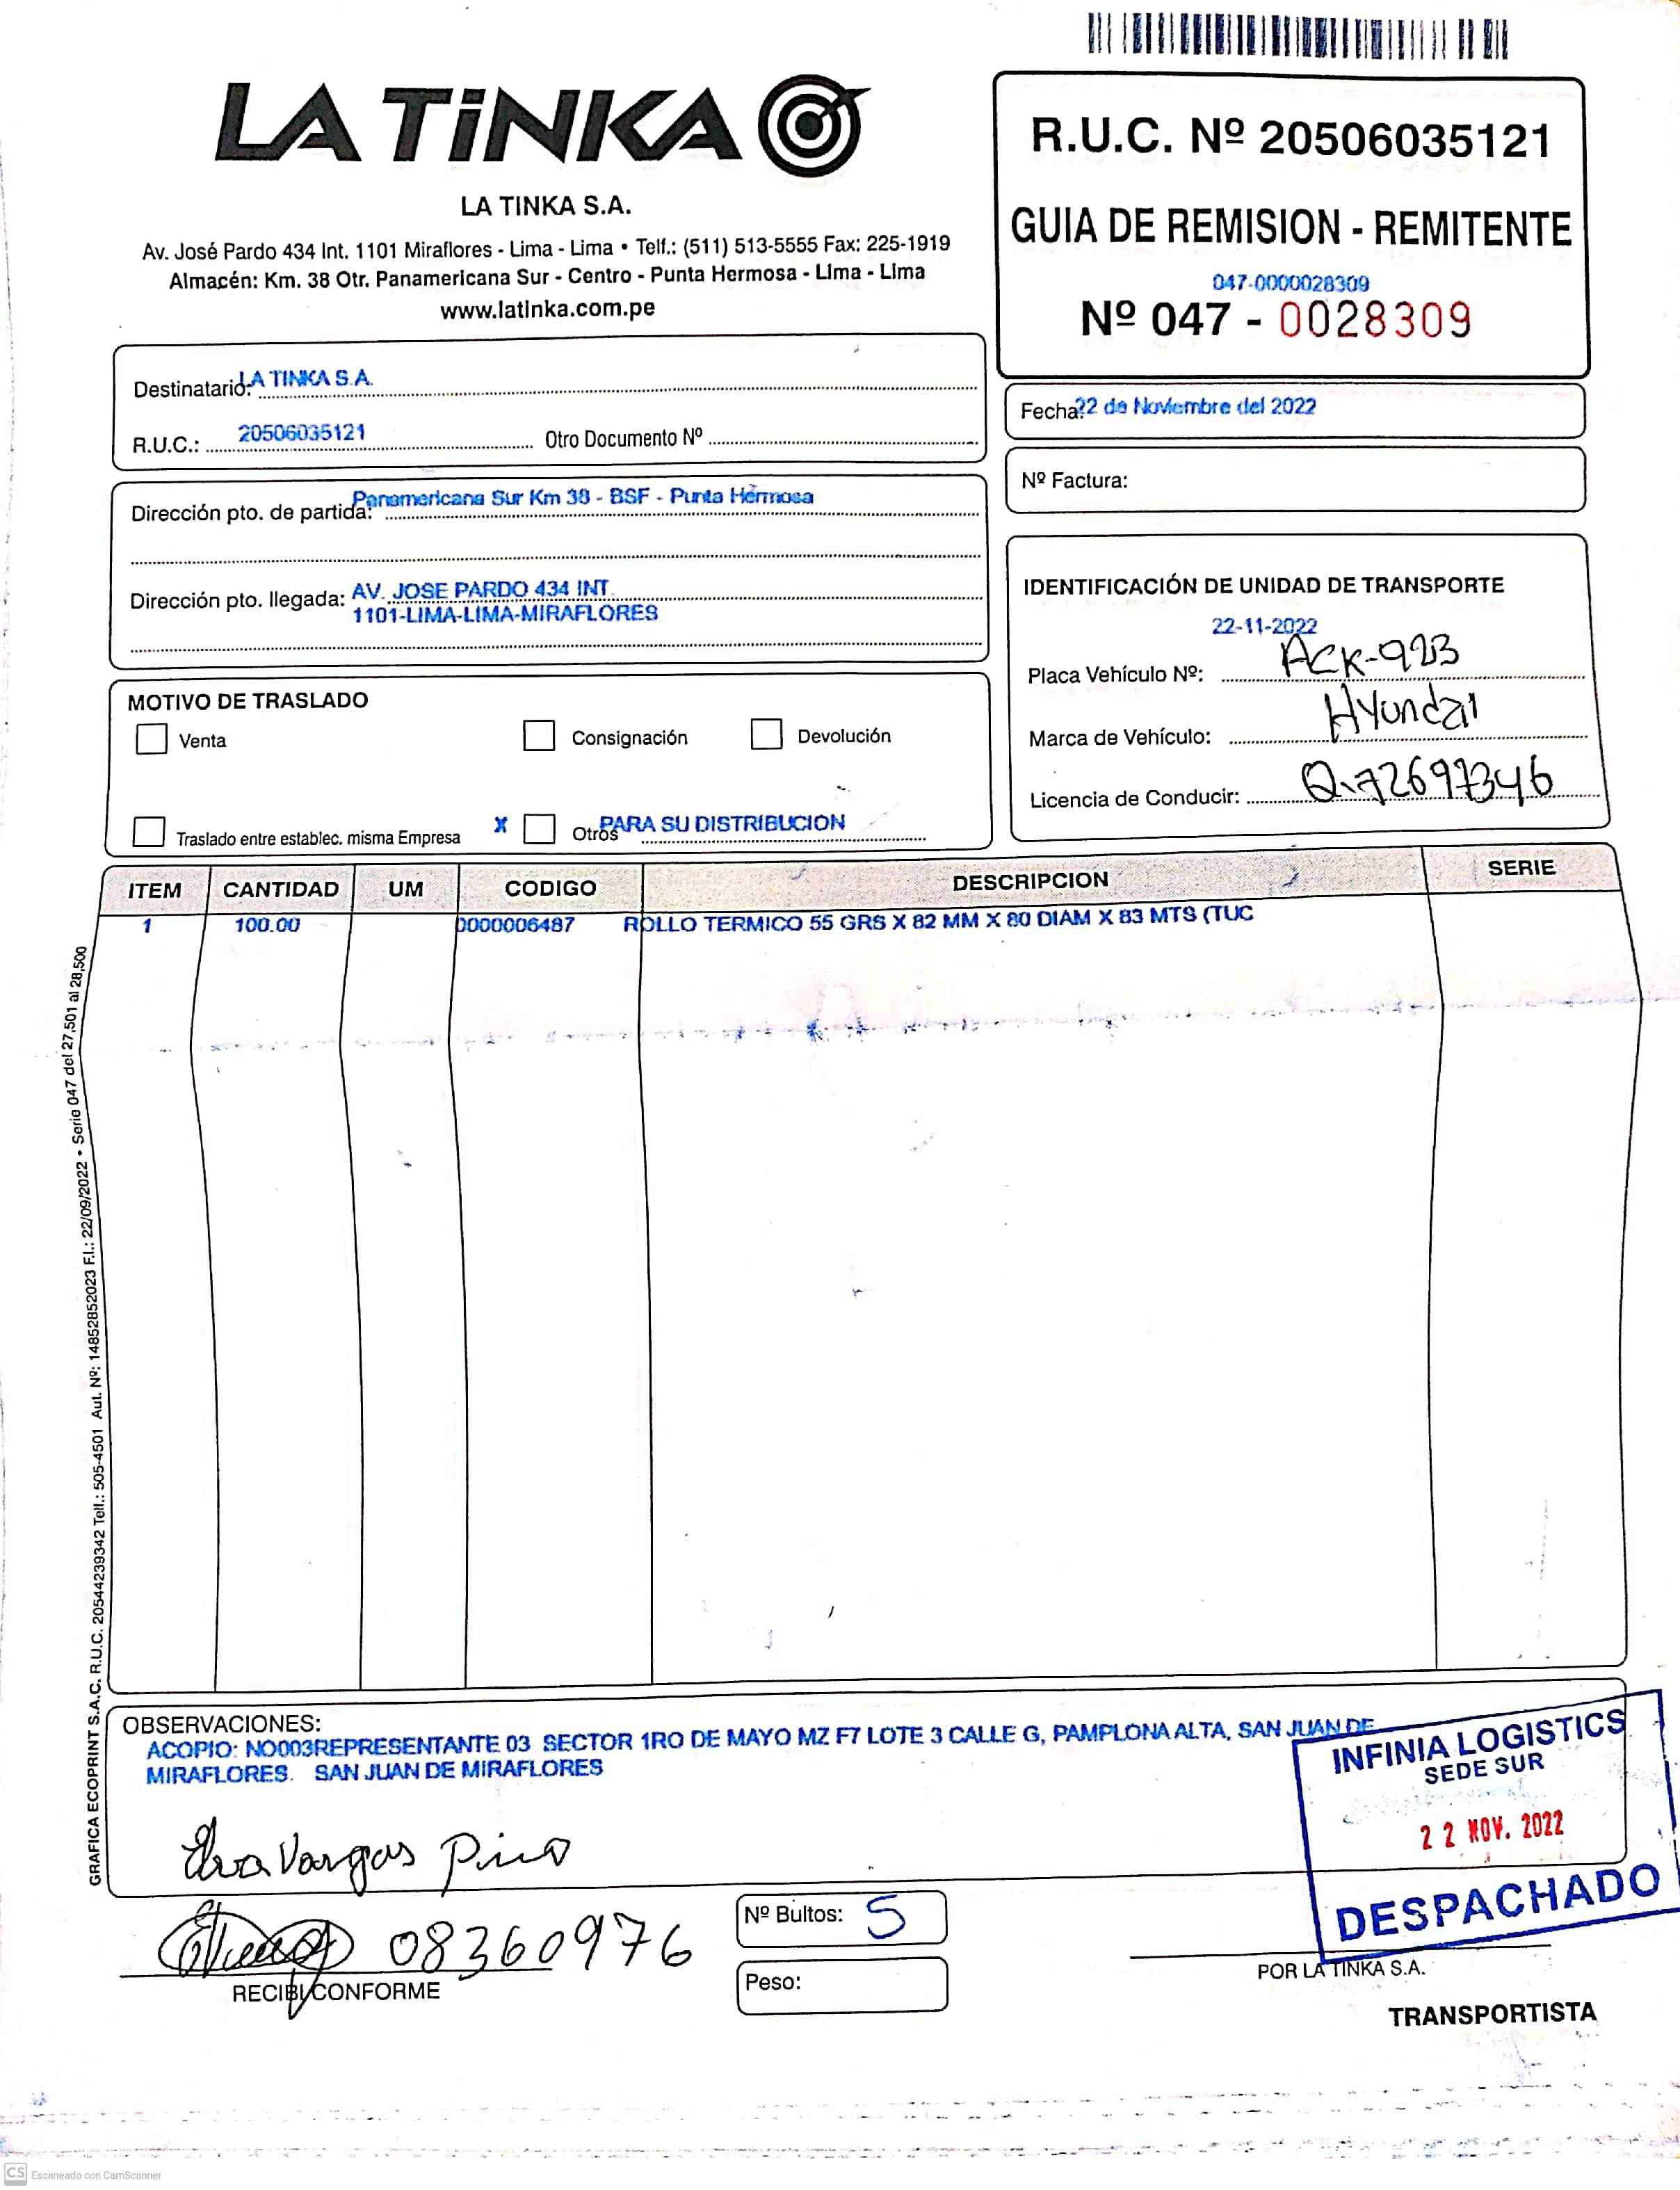 LA TiNKA
LA TINKA S.A.
Av. José Pardo 434 Int. 1101 Miraflores - Lima - Lima • Telf.: (511) 513-5555 Fax: 225-1919
Almacén: Km. 38 Otr. Panamericana Sur - Centro - Punta Hermosa - Lima - Lima
www.latinka.com.pe
R.U.C. Nº 20506035121
GUIA DE REMISION - REMITENTE
047-0000028309
Nº 047 - 0028309
Destinatario: LA TINKA S.A.
R.U.C.: 20506035121 Otro Documento Nº
Fecha: 22 de Noviembre del 2022
Nº Factura:
Dirección pto. de partida: Panamericana Sur Km 38 - BSF - Punta Hermosa
Dirección pto. llegada: AV. JOSE PARDO 434 INT.
1101-LIMA-LIMA-MIRAFLORES
IDENTIFICACIÓN DE UNIDAD DE TRANSPORTE
22-11-2022
Placa Vehículo Nº: ACK-923
Marca de Vehículo: Hyundai
Licencia de Conducir: Q-72697346
MOTIVO DE TRASLADO
Venta Consignación Devolución
Traslado entre establec. misma Empresa X Otros PARA SU DISTRIBUCION
ITEM CANTIDAD UM CODIGO DESCRIPCION SERIE
1 100.00 0000006487 ROLLO TERMICO 55 GRS X 82 MM X 80 DIAM X 83 MTS (TUC
GRAFICA ECOPRINT S.A.C. R.U.C. 20544239342 Telf.: 505-4501 Aut. Nº: 14852852023 F.I.: 22/09/2022 • Serie 047 del 27,501 al 28,500
OBSERVACIONES:
ACOPIO: NO003REPRESENTANTE 03 SECTOR 1RO DE MAYO MZ F7 LOTE 3 CALLE G, PAMPLONA ALTA, SAN JUAN DE
MIRAFLORES. SAN JUAN DE MIRAFLORES
INFINIA LOGISTICS
SEDE SUR
22 NOV. 2022
DESPACHADO
Vargas Pino
08360976
RECIBI CONFORME
Nº Bultos: 5
Peso:
POR LA TINKA S.A.
TRANSPORTISTA
CS Escaneado con CamScanner